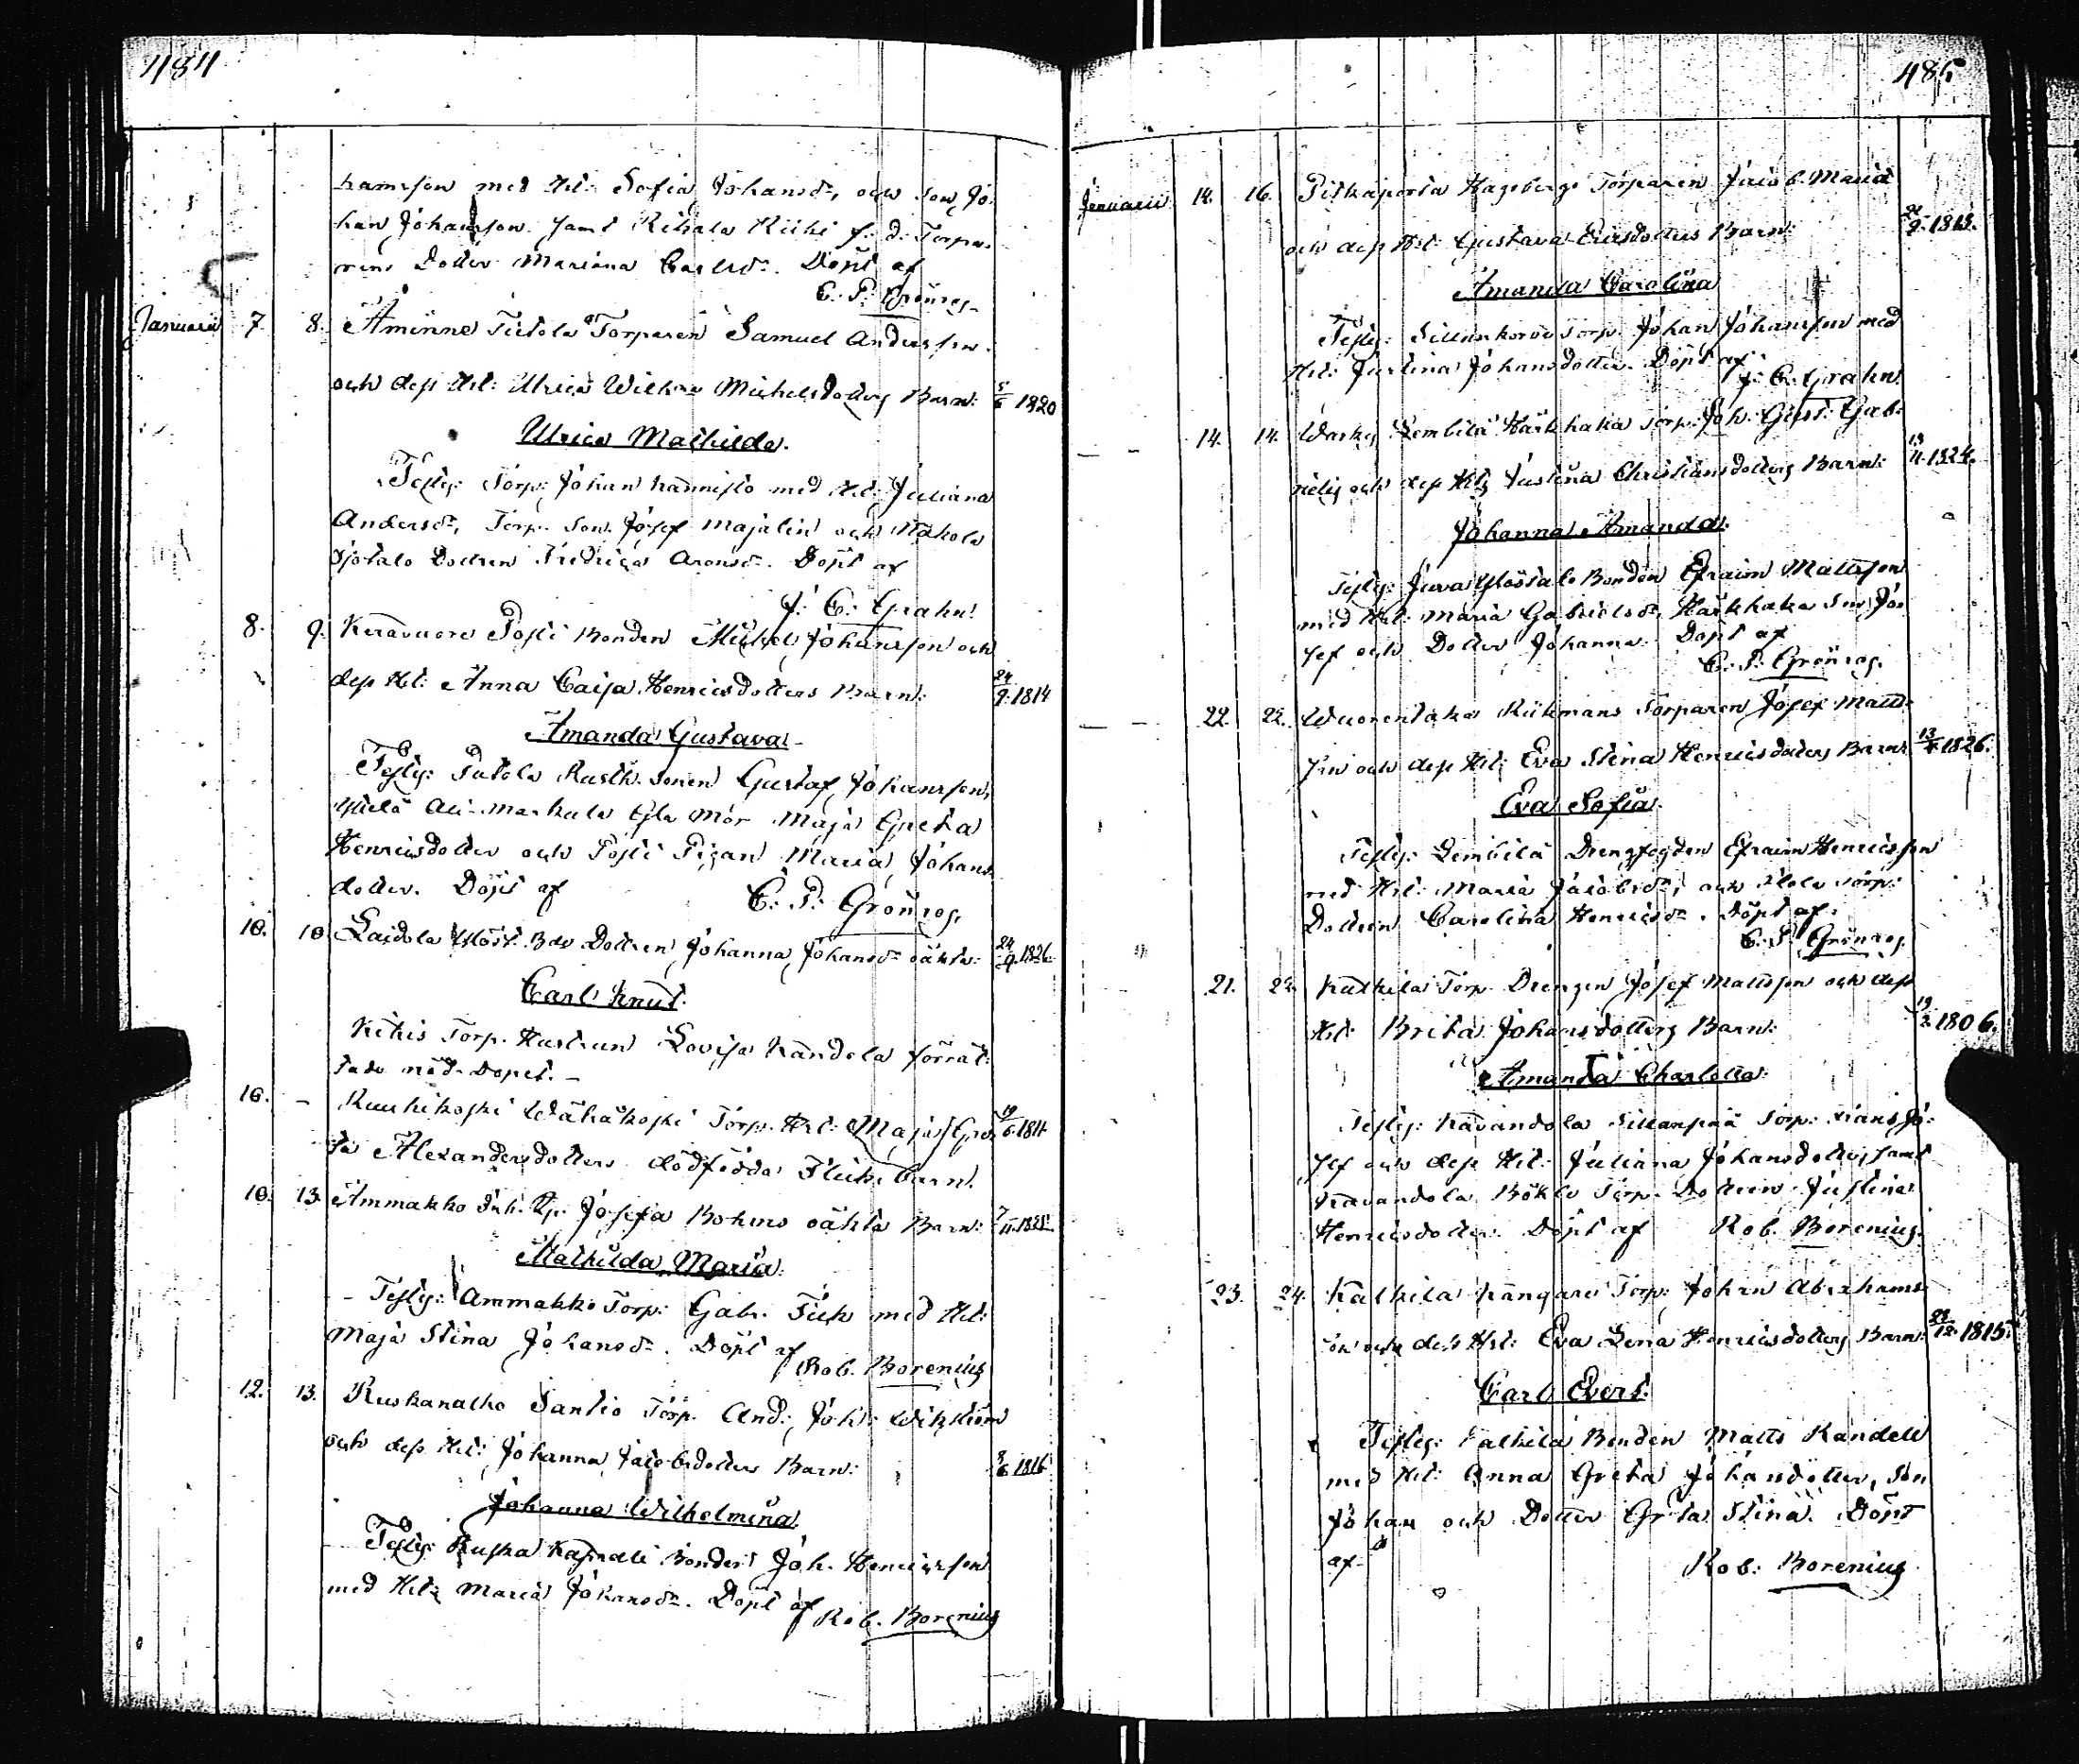 484
hansson med Hst: Sofia Johansdr, och son Jo-
han Johansson samt Kihala Kiiki f: d: Torpa-
rens Dotter Mariana Carlsdr. Döpt af
C: P: Grönroos
Januarii 7. 8. Åminne Tietola Torparen Samuel Andersson
och dess Hst: Ulrica Wilhna Michelsdotters Barn: 5/6 1820
Ulrica Mathilda.
Testes: Torp: Johan Kannisto med Hst: Juliana
Andersdr, Torp. Son. Josef Majalin och Näkola
Ojotalo Dottren Fredrica Aronsdr. Döpt af
J: C: Grahn.
8. 9. Keravuore Posti Bonden Michel Johansson och
dess Hst: Anna Caisa Henricsdotters Barn: 24/9 1814
Amanda Gustava
Testes: Tatola Rusth. sonen Gustaf Johansson,
Ali-Markula Gla Mor Maja Greta
Henricsdotter och Posti Pigan Maria Johans-
dotter. Döpt af C: P: Grönroos
10. 10. Laidola Dottren Johanna Johansdr oäkta: 24/9 1826
Carl Knut.
Kikis Torp. Hustrun Lovisa Kandola förrät-
tade nöd-Dopet.
10. – Kuuskikoski Wähäkoski Torp. Hst: Maja Gre- 19/6 1811
ta Alexandersdotters dödfödda Flickebarn.
10. 13. Ammakko Inh. Josefa Bohms oäkta Barn: 7/11 1825
Mathilda Maria.
Testes: Ammakko Torp: Gabr. Fick med Hst:
Maja Stina Johansdr. Döpt af
Rob. Borenius
12. 13. Ruskanalho Santio Torp. And: Joh: Wikström
och dess Hst: Johanna Jacobsdotters Barn: 8/6 1816
Johanna Wilhelmina.
Testes: Bonden Joh. Henricsson
med Hst: Maria Johansdr. Döpt af
Rob. Borenius
485
Januarii 14. 16. Pitkäporta Hagsbergs Torparen Jacob Maria
och dess Hst: Gustava Ericsdotters Barn: 1818.
Amanda Carolina
Testes: Sillankorva Torp. Johan Johansson med
Hst: Justina Johansdotter. Döpt af
J: C: Grahn
14. 14. Lembilä Härkhaka Torp. Joh: Gust: Gab-
rielis och dess Hst Justina Christiansdotters Barn: 13/11 1824.
Johanna Amanda.
Testes: Juva Ylöstalo Bonden Efraim Mattsson
med Hst: Maria Gabrielsdr, Härkhaka Son Jo-
sef och Dotter Johanna. Döpt af
C: P: Grönroos
22. 22. Wuorentaka Rickmans Torparen Josef Matts-
son och dess Hst: Eva Stina Henricsdotters Barn: 1826.
Eva Sofia.
Testes: Lembilä Drengfogden Efraim Henricsson
med Hst: Maria Jacobsdr, och Torp:
Dottren Carolina Henricsdr. Döpt af:
C: P: Grönroos
21. Katkila Torp. Drengen Josef Mattsson och dess
Hst: Brita Johansdotters Barn: 19/2 1806.
Amanda Charlotta.
Testes: Kavandola Sillanpää Torp: Frans Jo-
sef och dess Hst: Juliana Johansdotter, samt
Kavandola Böckle Torp. Dottren Justina
Henricsdotter. Döpt af Rob. Borenius.
23. 24. Kalkila Kangare Torp: Johan Abrahams-
son och dess Hst: Eva Lena Henricsdotters Barn: 1815.
Carl Evert.
Testes: Kalkila Bonden Matts Kandell
med Hst: Anna Greta Johansdotter, Son
Johan och Dotter Greta Stina. Döpt
af Rob: Borenius